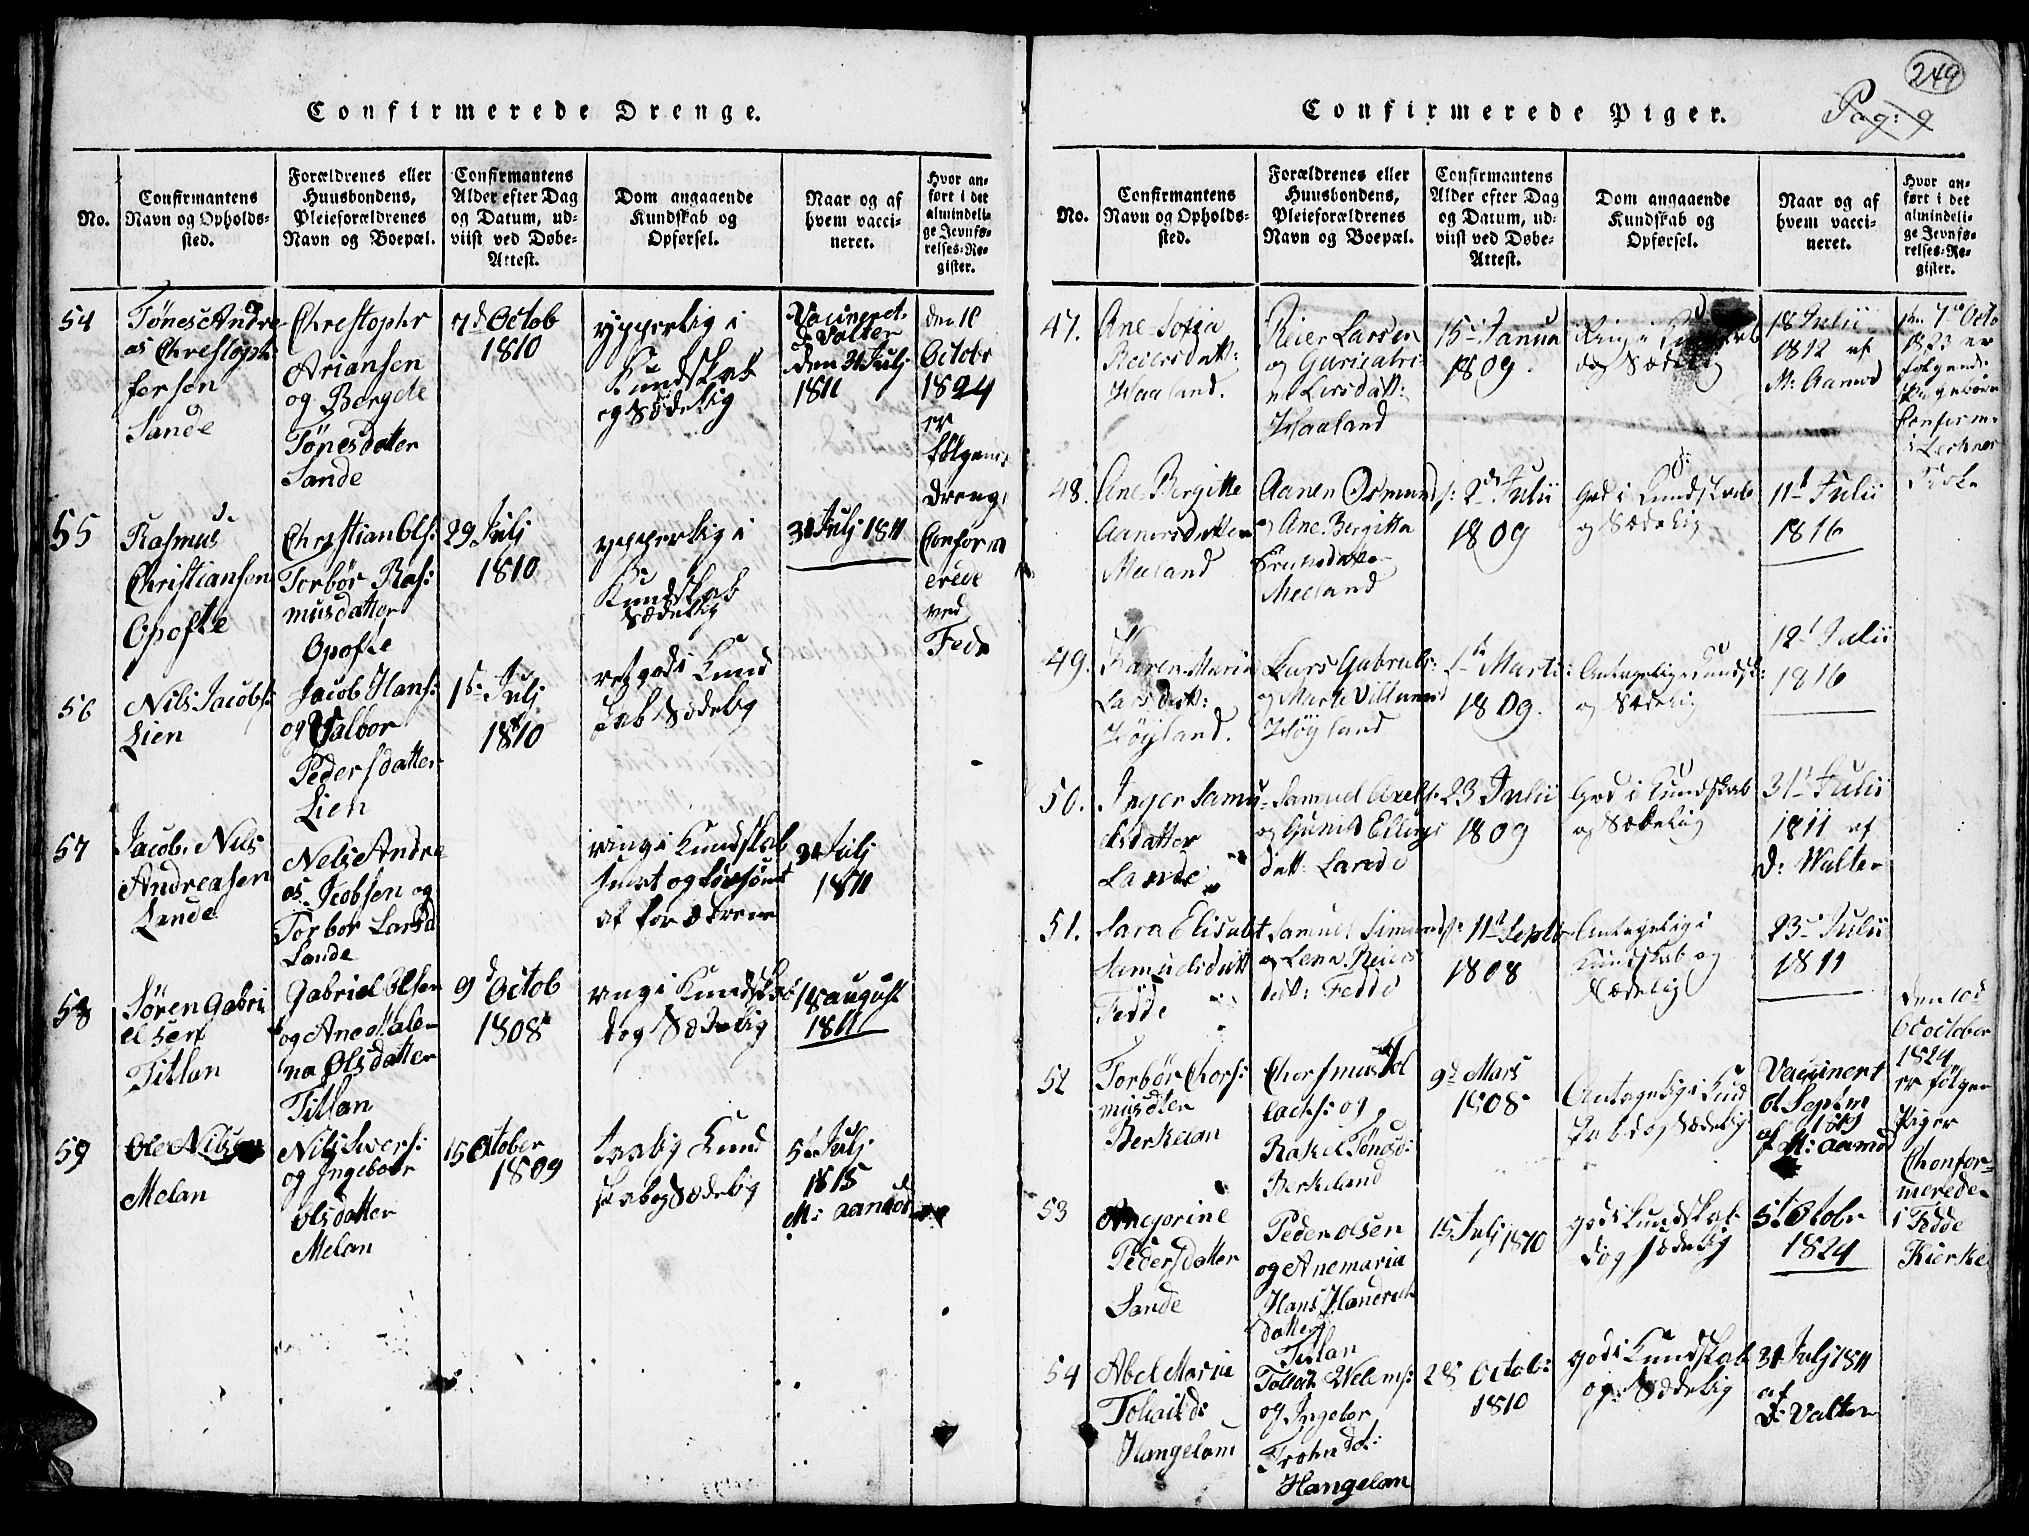 Confirmerede Drenge.
No.
Confirmantens
Navn og Opholds-
sted.
Forældrenes eller
Huusbondens,
Pleieforældrenes
Navn og Boepæl.
Confirmantens
Alder efter Dag
og Datum, ud-
viist ved Døbe-
Attest.
Dom angaaende
Kundskab og
Opførsel.
Naar og af
hvem vacci-
neret.
Hvor an-
ført i det
almindeli-
ge Jevnfø-
relses-Re-
gister.
54
Tønes Andre
as Christoph
fersen
Sande
Christopher
Ariansen
og Bergete
Tönesdatter
Sande
7d Octob
1810
ypperlig i
Kundskab
og Sædelig
Vaccineret
D: Valter
den 31 Julj
1811
den 10
Octobr
1824
er
følgende
Dreng
Conform
erede
ved
Fede
55
Rasmus
Christiansen
Opofte
Christian Ols:
Torbør Ras:
musdatter
Opofte
29 Julj
1810
ypperlig i
Kundskab
Sædelig
31 Julj 1811
56
Nils Jacobs:
Lien
Jacob Hans:
og Valbor
Pedersdatter
Lien
1st Julj
1810
ret god i Kund
skab Sædelig
57
Jacob Nils
Andreasen
Lande
Nels Andre
as Jcobsen og
Torbor Larsd
Lande
ring i Kundskab
31 Julj
1811
58
Sören Gabri
elsen
Titlan
Gabriel Olsen
og Ane Male-
na Olsdatter
Titlan
9d Octob
1808
ring i Kundskab
dog Sædelig
18 august
1811
59
Ole Nilsen
Melan
Nils Swers:
og Ingeboer
Olsdatter
Melan
15 October
1809
Kund
skab og Sædelig
5te Julj
1815
M: Aamod
249
Confirmerede Piger.
Pag: 9
No.
Confirmantens
Navn og Opholds-
sted.
Forældrenes eller
Huusbondens,
Pleieforældrenes
Navn og Boepæl.
Confirmantens
Alder efter Dag
og Datum, ud-
viist ved Døbe-
Attest.
Dom angaaende
Kundskab og
Opførsel.
Naar og af
hvem vacci-
neret.
Hvor an-
ført i det
almindeli-
ge Jevnfø-
relses-Re-
gister.
47.
Ane Sofia
Reiersdatt:
Haaland.
Reier Larsen
og Guricatri-
ne Larsdatt:
Haaland
15 Janua
1809.
Ring i Kundskab
dog Sædelig
18 Julii
1812 af
M: Aamod
den 7de Octo
1823 er
følgende
Confirm:
48.
Ane Bergitte
Aanensdatter
Meeland
Aanen Osmunds:
og Ane Bergitta
Meeland
2de Julii
1809
God i Kundskab
og Sædelig
11te Julii
1816
49.
Karen Maria
Larsdatt:
Høyland.
Lars Gabriels:
Høyland
1te Marts:
1809.
Antagelig Kundsk:
og Sædelig
12te Julii
1816
50.
Inger Samu-
elsdatter
Lande
Samuel Axels:
og Gunild Ellings
datt: Lande
23 Julii
1809
God i Kundskab
og Sædelig
31te Julii
1811 af
D: Walter
51.
Sara Elisabet
Samuelsdatt
Fedde
Samuel Simonds:
og Lena Reiers
datt: Fedde
11te Septbr
1808
Antagelig i
Kundskab og
Sædelig
23 Julii
1811
52
Torbør Thors:
musdter
Berkelan
Thorsmus Tol
lachs: og
Rakel Tønesd:
Berkeland
9d Mars
1808
Antagelig i Kund
skab dog Sædelig
Vaccinert
d Septm
1819
af M: Aamod
October
1824
er følgen
Piger
Chonfor-
merede
i Fedde
Kierke
53
Anejorine
Pedersdatter
Sande
Peder Olsen
og Anemaria
Hans Handrick
datter
Titlan
15 Julj 1810
god i Kundskab
dog sædelig
5t Otobr
1824
54
Abel Maria
Toliaifsd:
Hangelam
og Ingebor
Hangelan
28 Octob:
1810
god i Kundskab
og Sædelig
31 Julj 1811
af
D: Valter